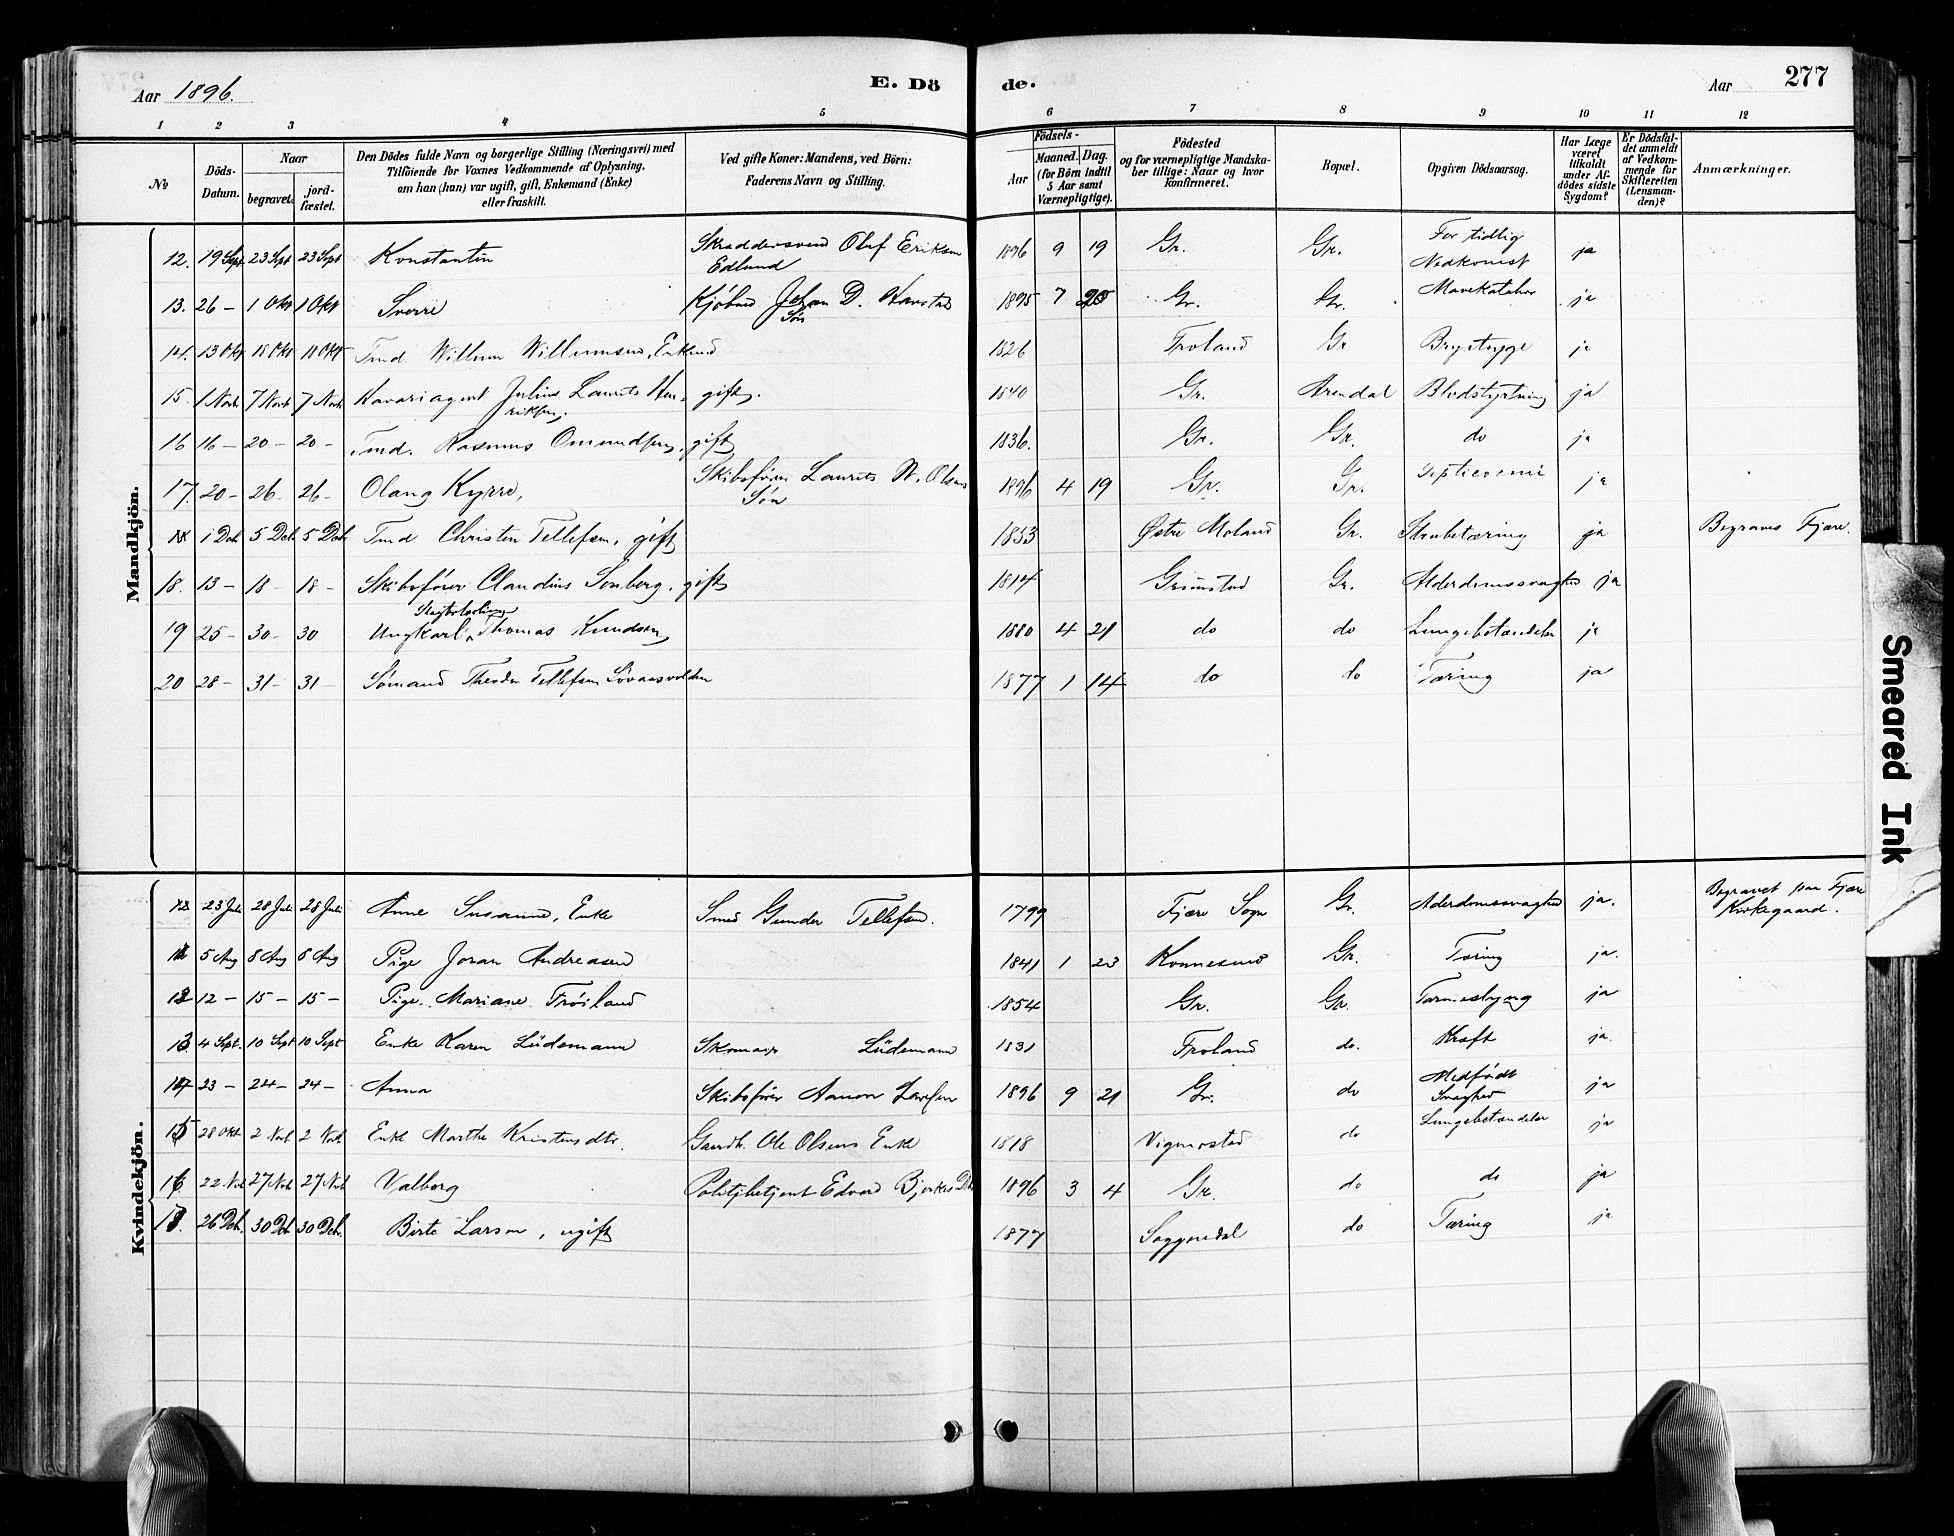 Aar 1896. E. Dö de. Aar 277
1 2 3 4 5 6 7 8 9 10 11 12
No
Döds-Datum.
Naar
begravet.
jord-fæstet.
Den Dödes fulde Navn og borgerlige Stilling (Næringsvei) med
Tilföiende for Voxnes Vedkommende af Oplysning,
om han (hun) var ugift, gift, Enkemand (Enke)
eller fraskilt.
Ved gifte Koner: Mandens, ved Börn:
Faderens Navn og Stilling.
Födsels-
Aar
Maaned. Dag.
(for Börn indtil
5 Aar samt
Værnepligtige).
Födested
og for værnepligtige Mandska-
ber tillige: Naar og hvor
konfirmeret.
Bopæl.
Opgiven Dödsaarsag.
Har Læge
været
tilkaldt
under Af-
dödes sidste
Sygdom?
Er Dödsfal-
det anmeldt
af Vedkom-
mende for
Skifteretten
(Lensman-
den)?
Anmærkninger.
Mandkjön.
12. 19 Sept 23 Sept 23 Sept Konstantin Skreddersvend Oluf Eriksen Edlund 1896 9 19 Gr. Gr. For tidlig Nedkomst ja
13. 26 - 1 Okt 1 Okt Sverre Johan D. Søn 1895 7 Gr. Gr. Mavekatahr ja
14. 13 Okt 18 Okt 18 Okt Tmd Willum Willumsen, Enkemd 1826 Froland Gr Brystsyge ja
15. 1 Novb 7 Novb 7 Novb Havariagent Julius Laurits Hen-riksen, gift. 1840 Gr. Arendal Blodstyrtning ja
16 16 - 20 - 20 - Tmd. Rasmus Omundsen, gift 1836. Gr. Gr. do ja
17. 20 - 26 - 26 - Olang Kyrre, Skibsfører Laurits N. Olsens Søn 1896 4 19 Gr. Gr. Septicæmi ja
1 Deb 5 Deb 5 Deb Tmd Christen Tellefsen, gift 1853 Østre Moland Gr. Strubetæring ja Begraves Fjære.
18. 13 - 18 - 18 - Skibsfører Claudius Sonberg, gift 1814 Grimstad Gr. Alderdomssvaghed ja
19 25 - 30 - 30 Ungkarl, Thomas Knudsen 1880 4 21 do do Lungebetændelse ja
20 28 - 31 - 31 - Sømand Theodor Tellefsen Løvaasvolden 1877 1 14 do do Tæring ja
Kvindekjön.
23 Juli 28 Juli 28 Juli Anne Susanne, Enke Smed Gunder Tellefsen. 1799 Fjære Sogn Gr. Alderdomssvaghed ja. Begravet paa Fjære Kirkegaard.
11 5 Aug 8 Aug 8 Aug Pige Joran Andreasen 1841 1 23 Konnesmo Gr. Tæring ja.
12 12 - 15 - 15 - Pige Mariane Frøiland 1854 Gr. Gr. ja
13 4 Sept. 10 Sept 10 Sept Enke Karen Lüdemann Skomager Lüdemann 1831 Froland do. Kræft ja.
14 23 - 24 - 24 - Anna Skibsfører Aanon Larsen 1896 9 21 Gr. do Medfødt Svaghed ja
15 28 Okt. 2 Novb 2 Novb. Enke Marthe Kristensdtr. Gaardb. Ole Olsens Enke 1818 Vigmostad do Lungebetændelse ja
16 22 Nvb 27 Novb. 27 Novb Valborg Politibetjent Edvard Bjerkes D. 1896 3 4 Gr. do do ja
26 Deb. 30 Deb 30 Deb. Birte Larsen, ugift 1877 Soggendal do Tæring ja
Smeared Ink